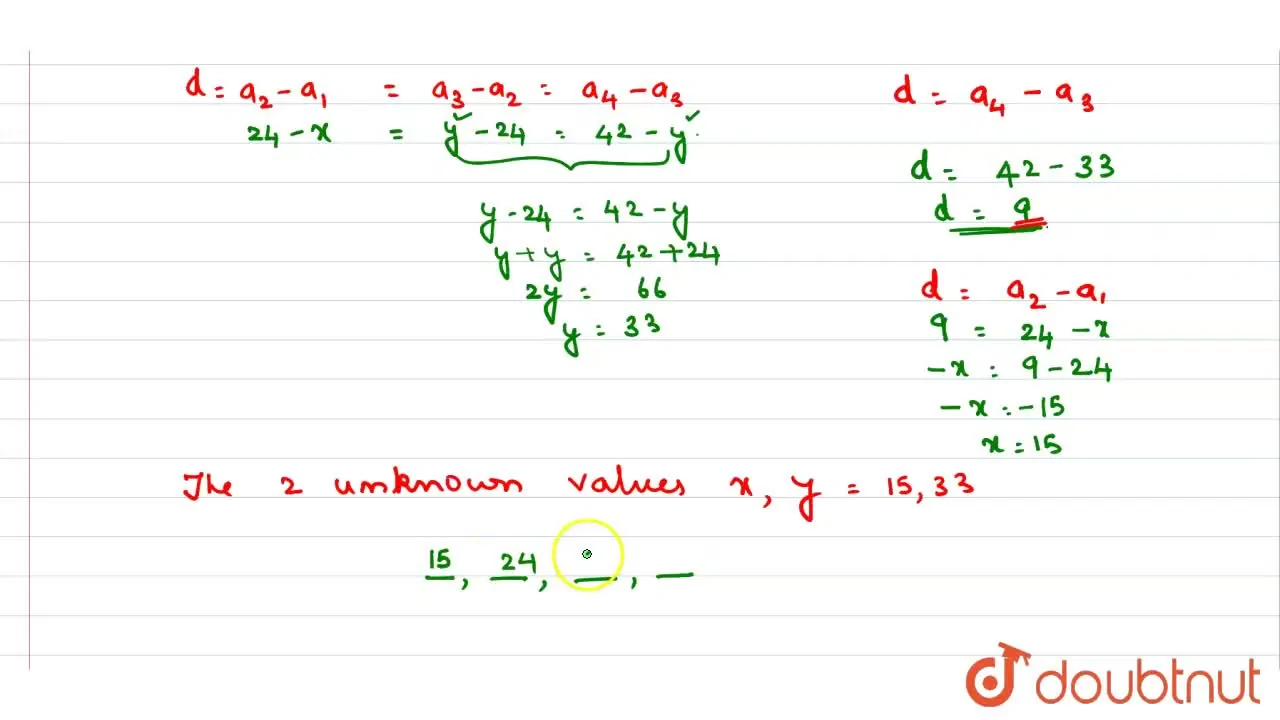 d = a₂ - a₁ = a₃ - a₂ = a₄ - a₃
24 - x = y - 24 = 42 - y
y - 24 = 42 - y
y + y = 42 + 24
2y = 66
y = 33
d = a₄ - a₃
d = 42 - 33
d = 9
d = a₂ - a₁
9 = 24 - x
-x = 9 - 24
-x = -15
x = 15
The 2 unknown values x, y = 15, 33
15, 24, __, __
doubtnut